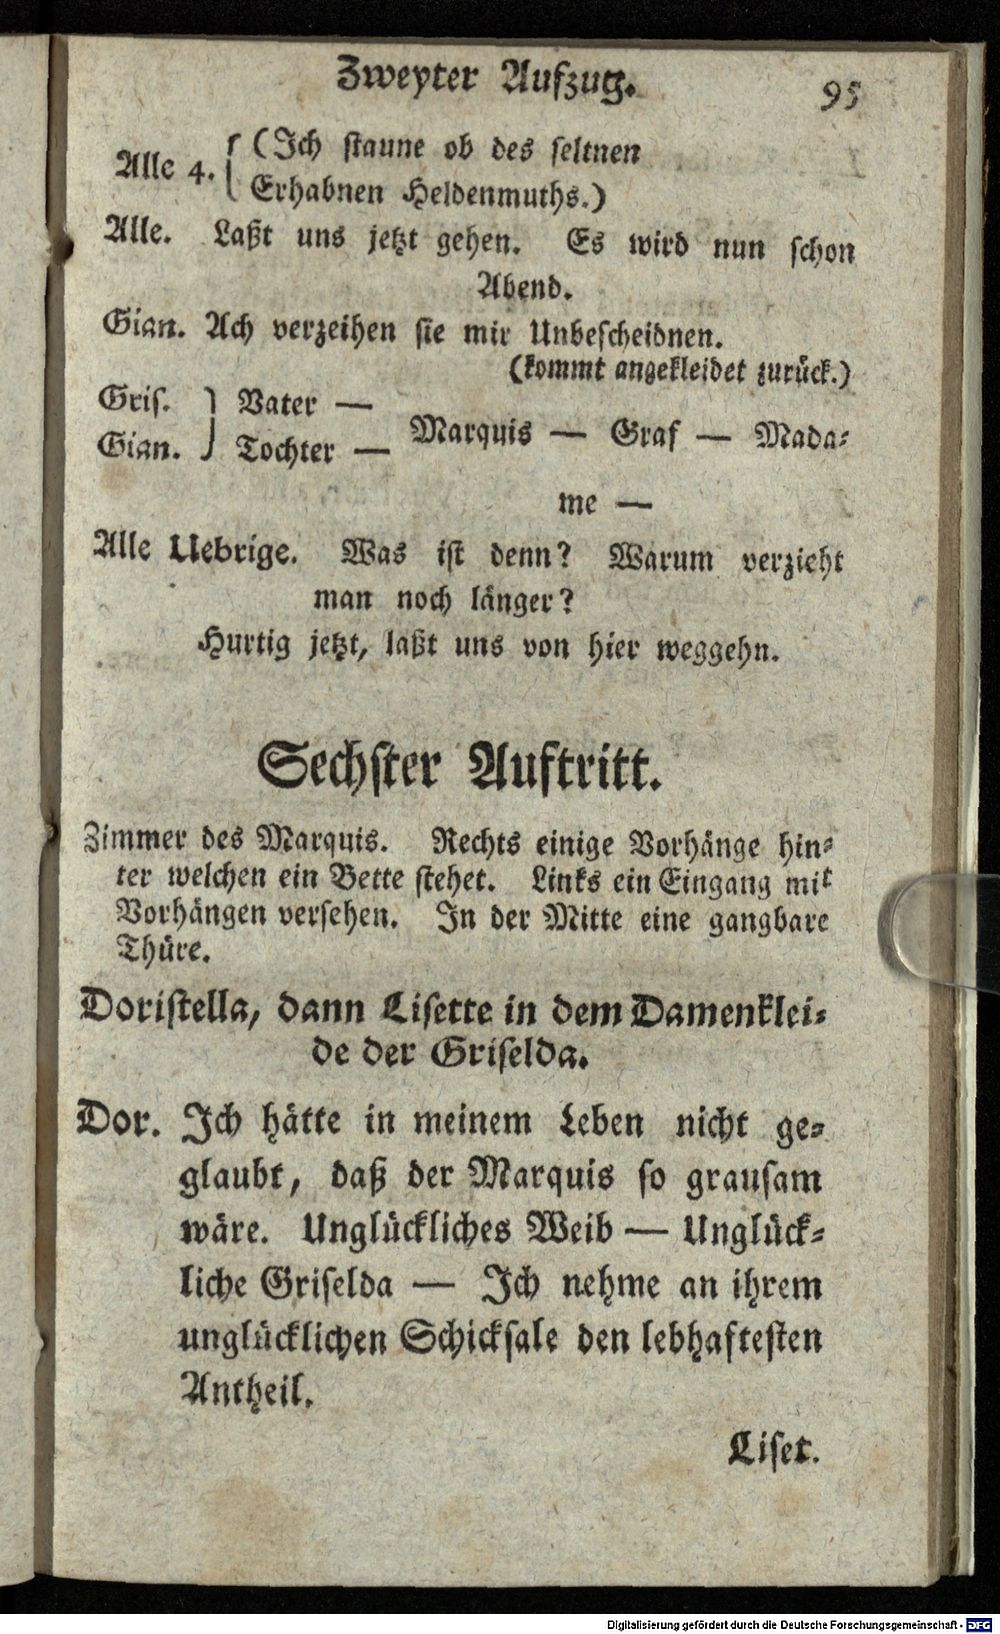 Zweyter Aufzug. 95
Alle 4. { (Ich staune ob des seltnen
Erhabnen Heldenmuths.)
Alle. Laßt uns jetzt gehen. Es wird nun schon
Abend.
Gian. Ach verzeihen sie mir Unbescheidnen.
(kommt angekleidet zurück.)
Gris. } Vater —
Gian. } Tochter — Marquis — Graf — Mada-
me —
Alle Uebrige. Was ist denn? Warum verzieht
man noch länger?
Hurtig jetzt, laßt uns von hier weggehn.
Sechster Auftritt.
Zimmer des Marquis. Rechts einige Vorhänge hin-
ter welchen ein Bette stehet. Links ein Eingang mit
Vorhängen versehen. In der Mitte eine gangbare
Thüre.
Doristella, dann Lisette in dem Damenklei-
de der Griselda.
Dor. Ich hätte in meinem Leben nicht ge-
glaubt, daß der Marquis so grausam
wäre. Unglückliches Weib — Unglück-
liche Griselda — Ich nehme an ihrem
unglücklichen Schicksale den lebhaftesten
Antheil.
Liset.
Digitalisierung gefördert durch die Deutsche Forschungsgemeinschaft - DFG